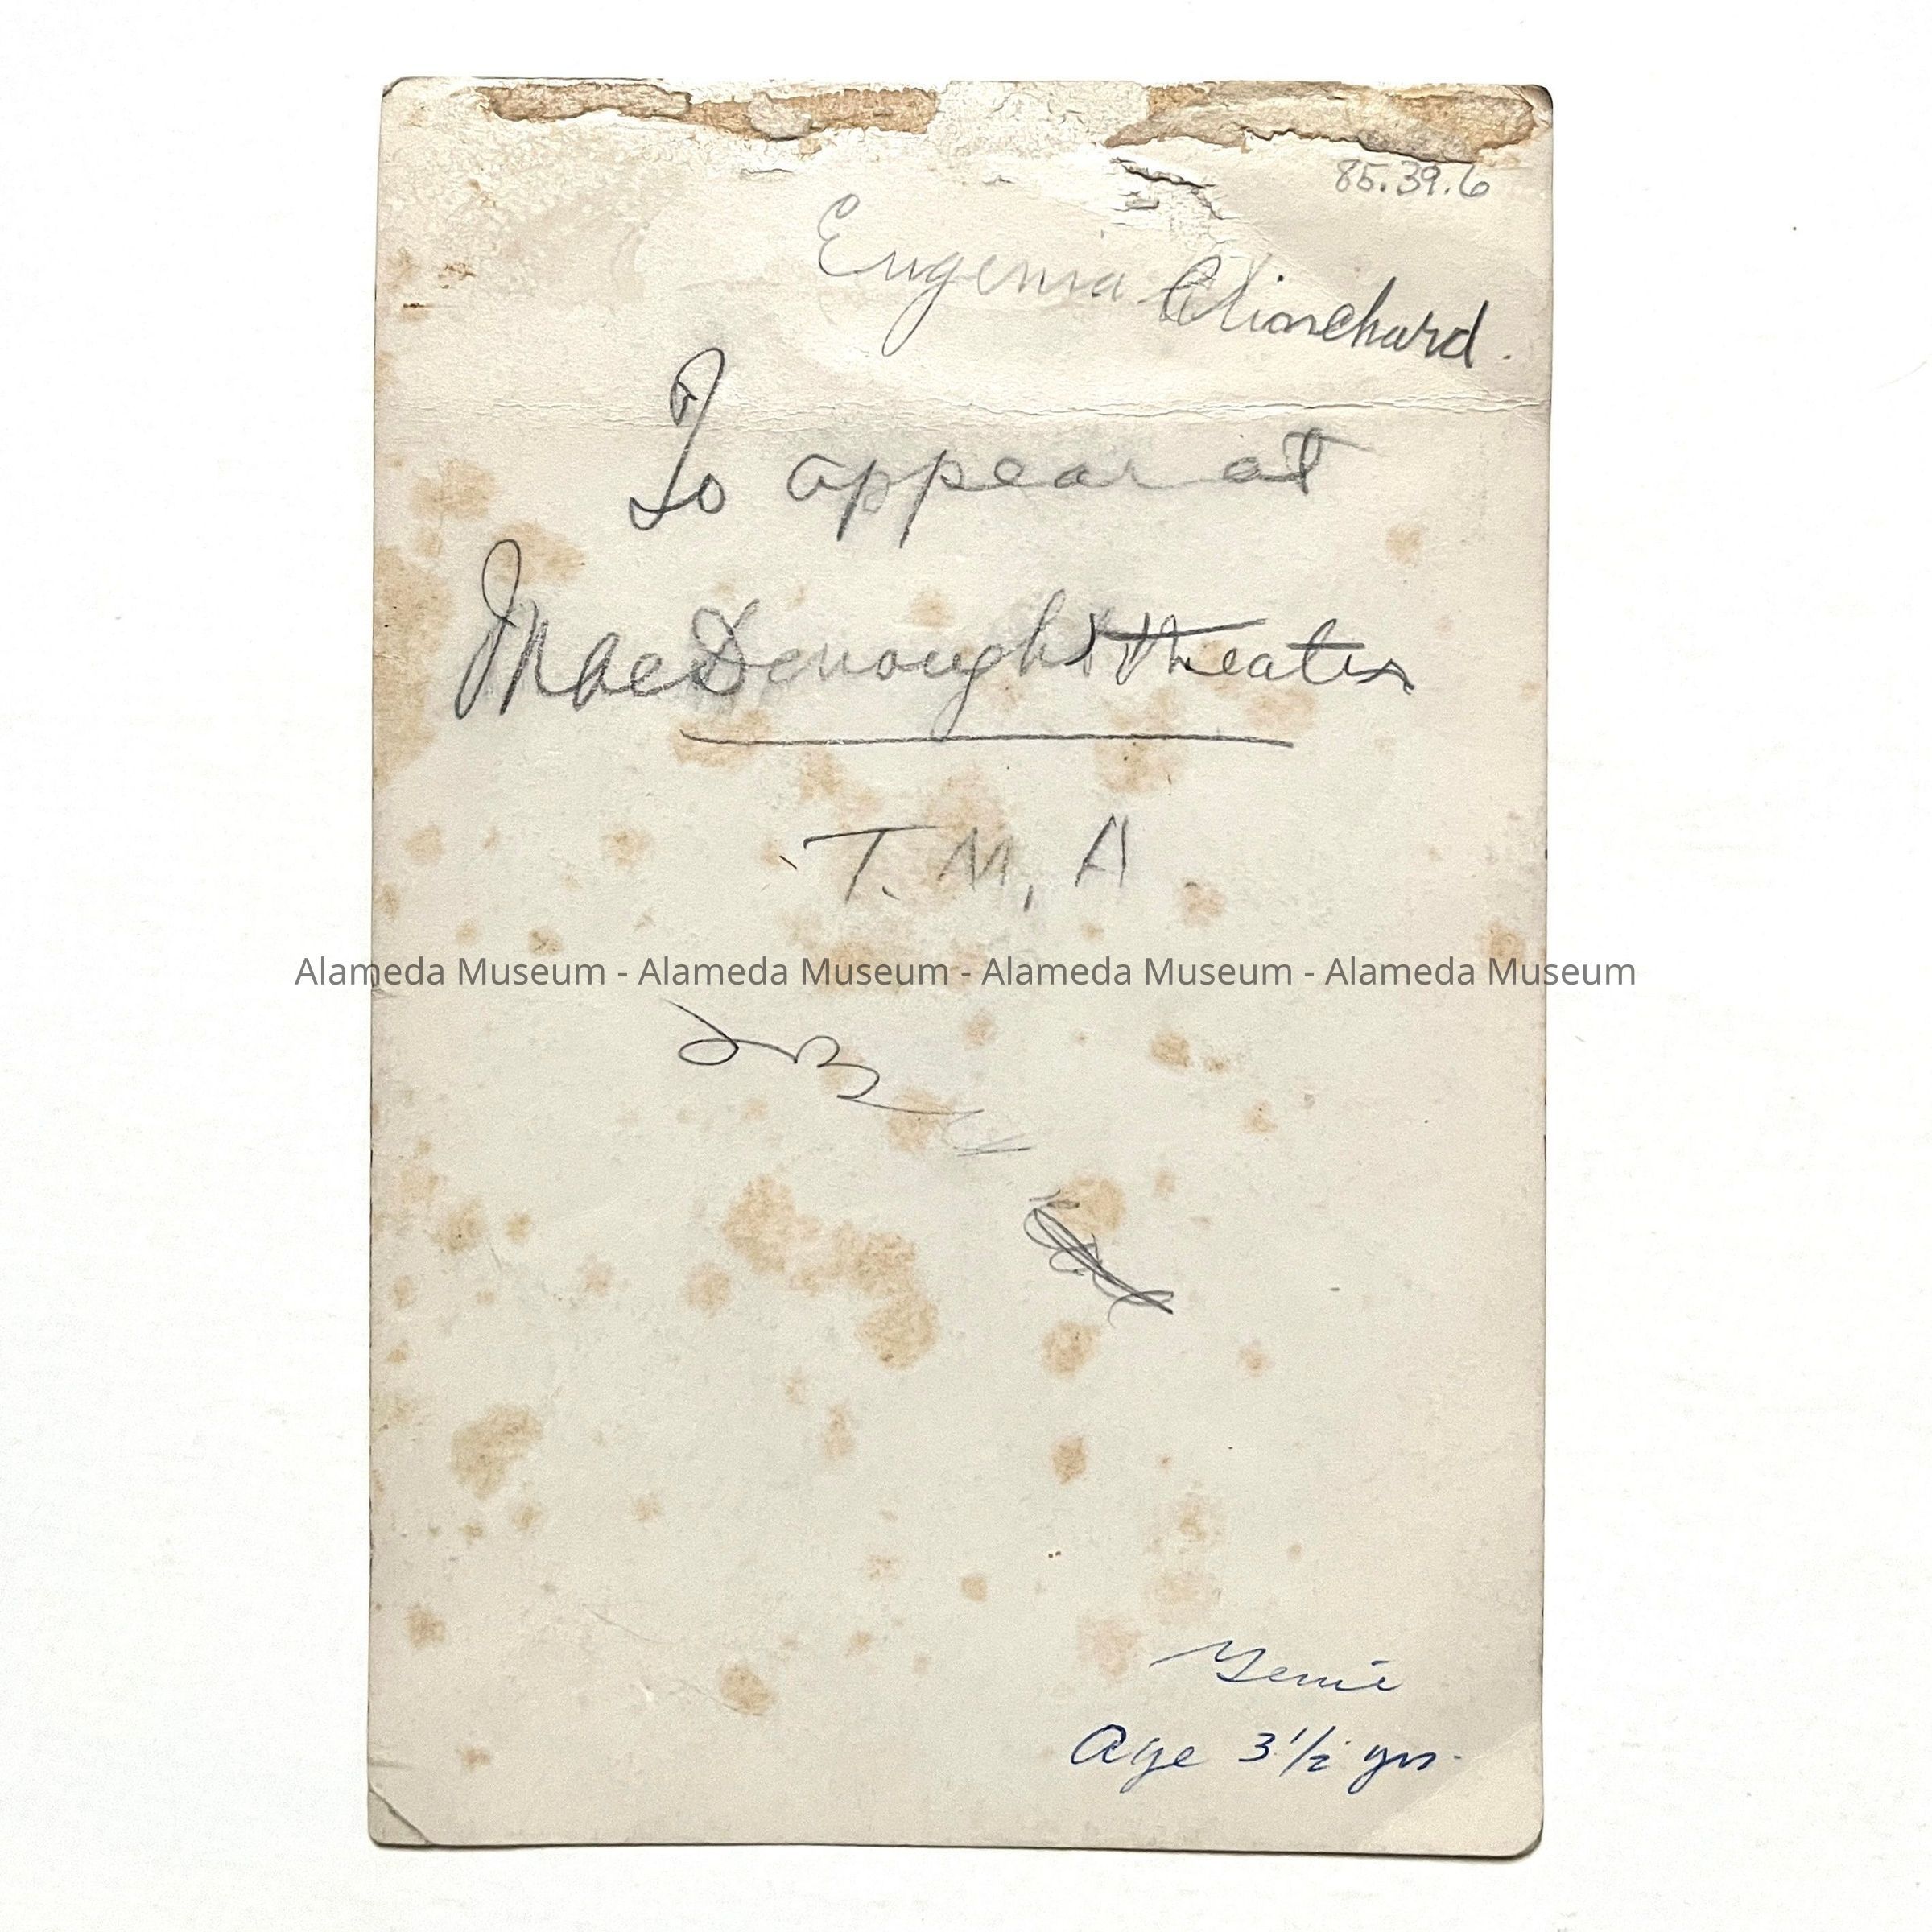 85.39.6
Eugenia Clinchard.
To appear at
MacDonough Theater
T. M. A
Alameda Museum - Alameda Museum - Alameda Museum - Alameda Museum
Genie
Age 3 1/2 yrs.